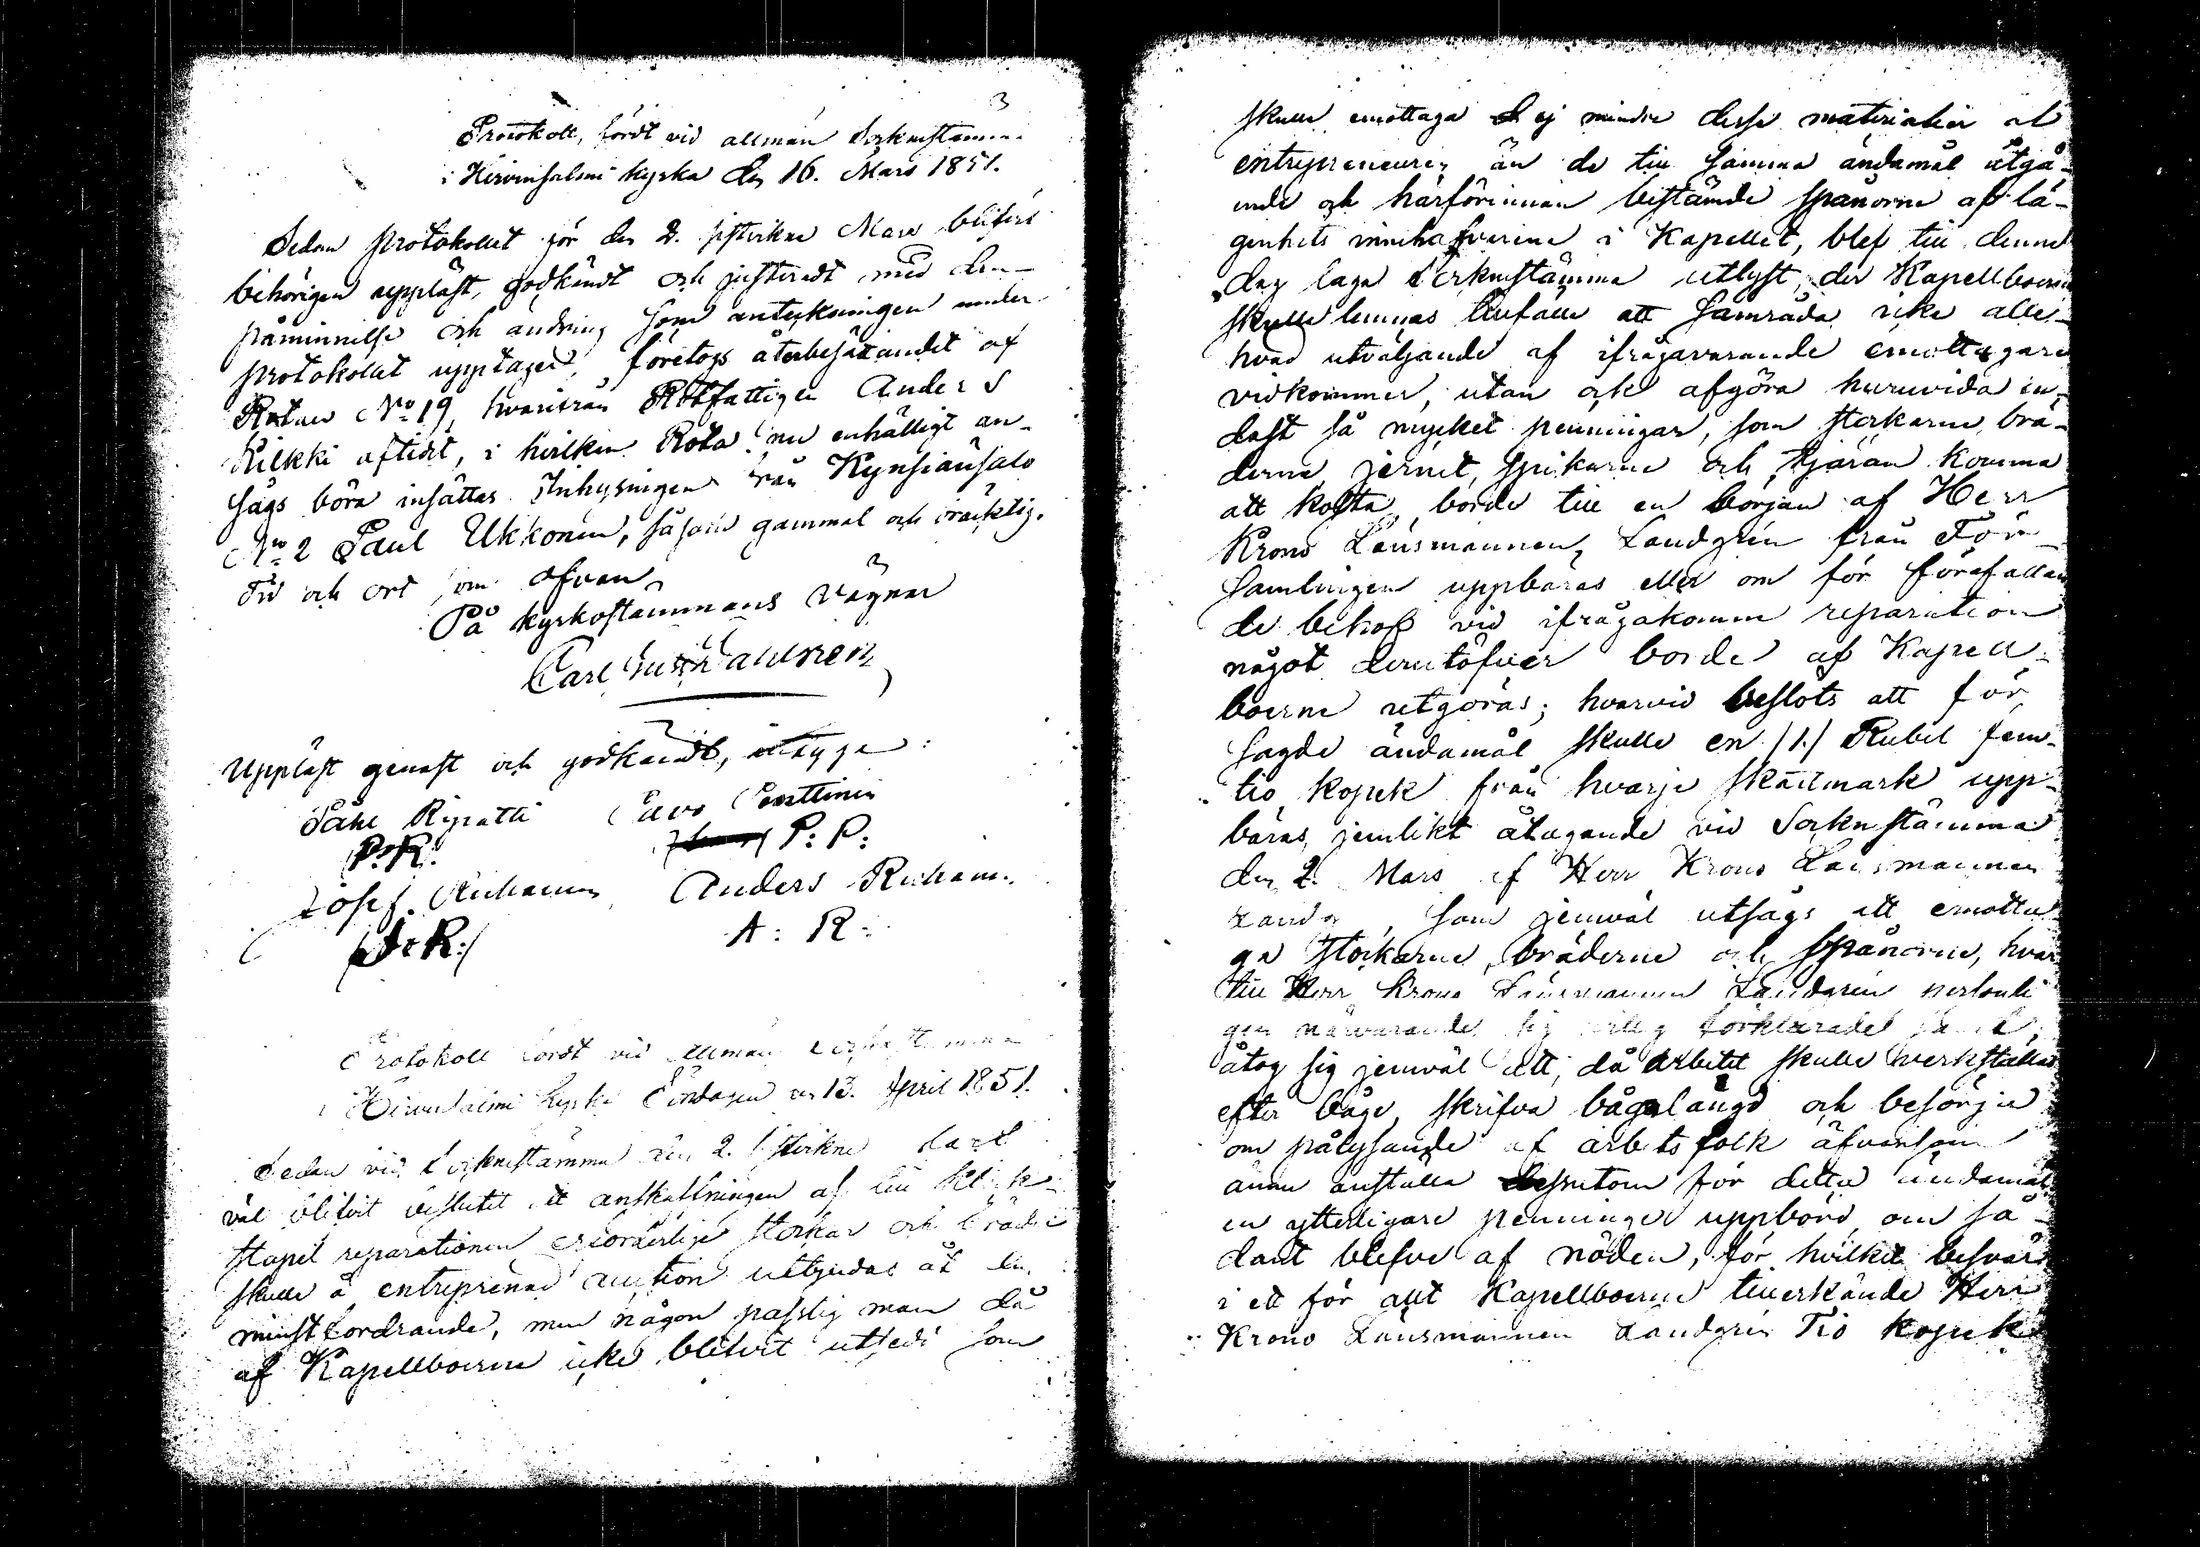 3
Protokoll, fördt vid allmän Sockenstämma
i Hirvensalmi kyrka den 16. Mars 1851.
Sedan protokollet för den 2. sistvikne Mars blifvit
behörigen uppläst, godkändt och justeradt med den
påminnelse och ändring som anteckningen under
protokollet upptager, företogs återbesättandet af
Rotan No 19, hvarifrån Rotfattigen Anders
Kilkki aflidit, i hvilken Rota nu enhälligt an-
sågs böra insättas Inhysningen från Kynsiänsalo
No 2 Paul Ukkonen, såsom gammal och bräcklig.
Tid och ort som ofvan,
På kyrkostämmans vägnar
Carl Gust:
Uppläst genast och godkändt, intyga:
Påhl Ripatti
P. R.
Pers Penttinen
P: P:
Josef Auvinen
Anders
A: R:
Protokoll fördt vid allmän Sockenstämma
i Hirvensalmi kyrka Söndagen den 13. April 1851.
Sedan vid Sockenstämma den 2. sistvikne Mars
väl blifvit beslutit att anskaffningen af till klock-
stapel reparationen erforderlige stockar och bräder
skulle å entreprenad auction utbjudas åt den
minstfordrande, men någon passlig man då
af Kapellboerne icke blifvit utsedd som
skulle emottaga ej mindre desse materialier af
entrepreneuren än de till samma ändamål utgå-
ende och härförinnan bestämde spånorne af lä-
genhets innehafvarene i Kapellet, blef till denne
dag laga Sockenstämma utlyst, der Kapellboerne
skulle lemnas tillfälle att samråda icke alle-
hvad utväljande af ifrågavarande emottagare
vidkommer, utan ock afgöra huruvida en-
dast så mycket penningar, som stockarne, brä-
derne, jernet, spikarne och tjäran komma
att kosta, borde till en början af Herr
Krono Länsmannen Landgrén från För-
samlingen uppbäras eller om för förefallan-
de behof vid ifrågakomm reparation
något derutöfver borde af Kapell-
boerne utgöras; hvarvid beslöts att för
sagde ändamål skulle en /1./ Rubel fem-
tio kopek från hvarje skattmark upp-
bäras, jemlikt åtagande vid Sockenstämma
den 2. Mars af Herr Krono Länsmannen
, som jemväl utsågs att emotta-
ga stockarne, bräderne och spånorne, hvar-
till Herr Krono Länsmannen Landgrén personli-
gen närvarande sig villig förklarade samt
åtog sig jemväl att, då arbetet skulle verkställas
efter båge, skrifva bågalängd och besörja
om pålysande af arbets folk äfvensom
ännu anställa dessutom för detta ändamål
en ytterligare penninge uppbörd, om så-
dant blefve af nöden, för hvilket besvär
i ett för allt Kapellboerne tillerkände Herr
Krono Länsmannen Landgrén Tio kopek